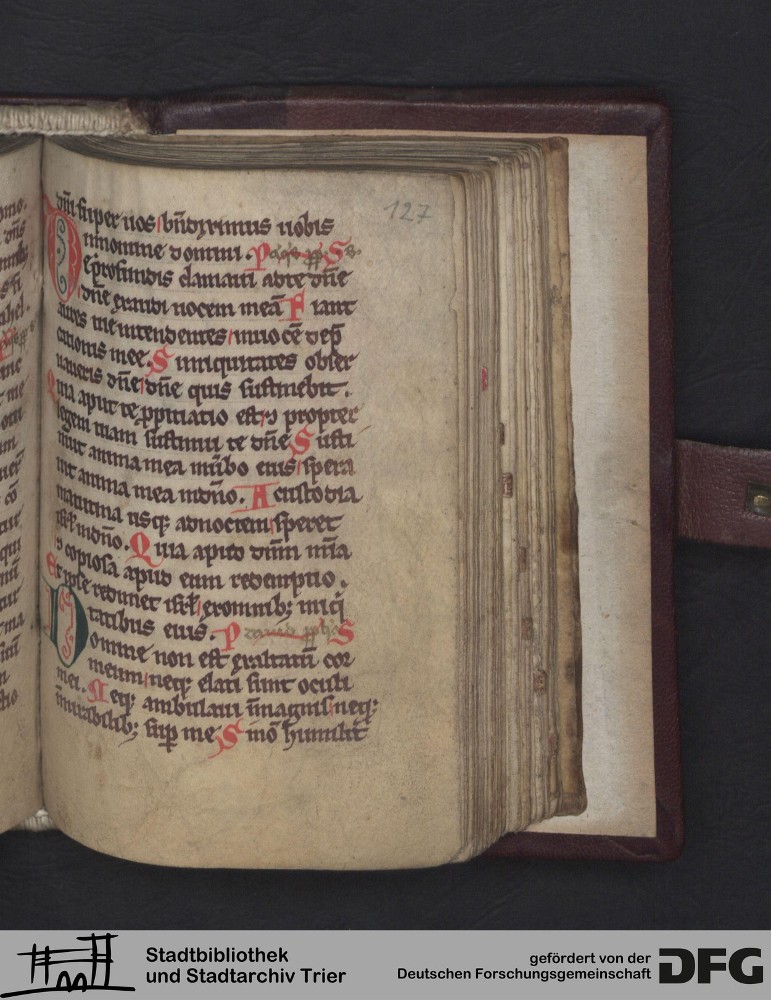 127
dñi super uos bñdiximus uobis
innomine domini. P S
De profundis clamaui adte dñe
dñe exaudi uocem meã Fiant
aures tue intendentes inuocẽ dep̃
cationis mee. Si iniquitates obser
uaueris dñe dñe quis sustinebit.
Quia aput te ꝓpitiatio est ⁊ propter
legem tuam sustinui te dñe Susti
nuit anima mea inũbo eius spera
uit anima mea indño. A custodia
matutina usq; adnoctem speret
isrl̃ indño. Quia aput dñm mĩa
⁊ copiosa aput eum redemptio.
Et ipse redimet isrl̃ exomnib; iniq̇
tatibus eius. P S
Domine non est exaltatũ cor
meum neq; elati sunt oculi
mei. Neq; ambulaui ĩmagnis neq;
ĩmirabilib; sup̱ me Si nõ humilit̃
Stadtbibliothek
und Stadtarchiv Trier
gefördert von der
Deutschen Forschungsgemeinschaft
DFG